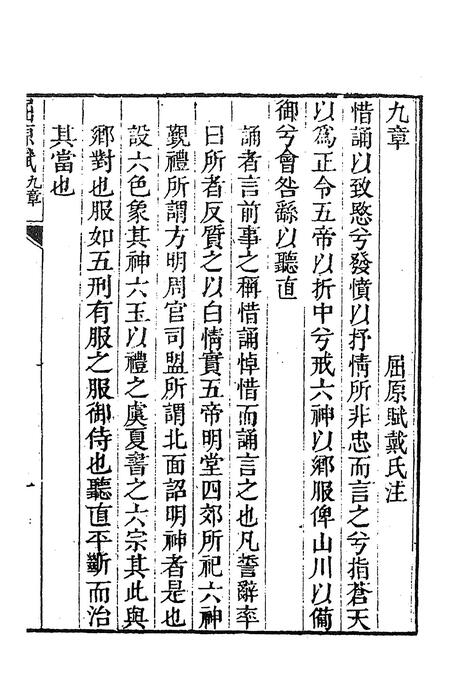 九章
屈原賦戴氏注
惜誦以致愍兮發憤以抒情所非忠而言之兮指蒼天
以爲正令五帝以折中兮戒六神以鄉服俾山川以備
御兮會咎繇以聽直
誦者言前事之稱惜誦悼惜而誦言之也凡誓辭率
曰所者反質之以白情實五帝明堂四郊所祀六神
覲禮所謂方明周官司盟所謂北面詔明神者是也
設六色象其神六玉以禮之虞夏書之六宗其此與
鄉對也服如五刑有服之服御侍也聽直平斷而治
其當也
屈原賦九章